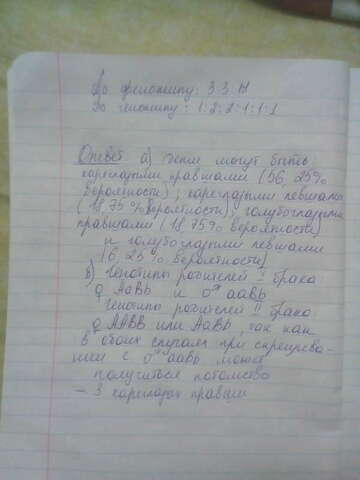 По фенотипу: 3:3:1:1
По генотипу: 1:2:2:1:1:1
Ответ: а) дети могут быть
кареглазыми правшами (56,25%
вероятности); кареглазыми левшами
(18,75% вероятности); голубоглазыми
правшами (18,75% вероятности)
и голубоглазыми левшами
(6,25% вероятности)
в) генотипы родителей I брака
♀ АаВb и ♂ ааВb
генотипы родителей II брака
♀ ААВВ или АаВb, так как
в обоих случаях при скрещива-
нии с ♂ ааВb может
получиться потомство
– 3 кареглазых правши